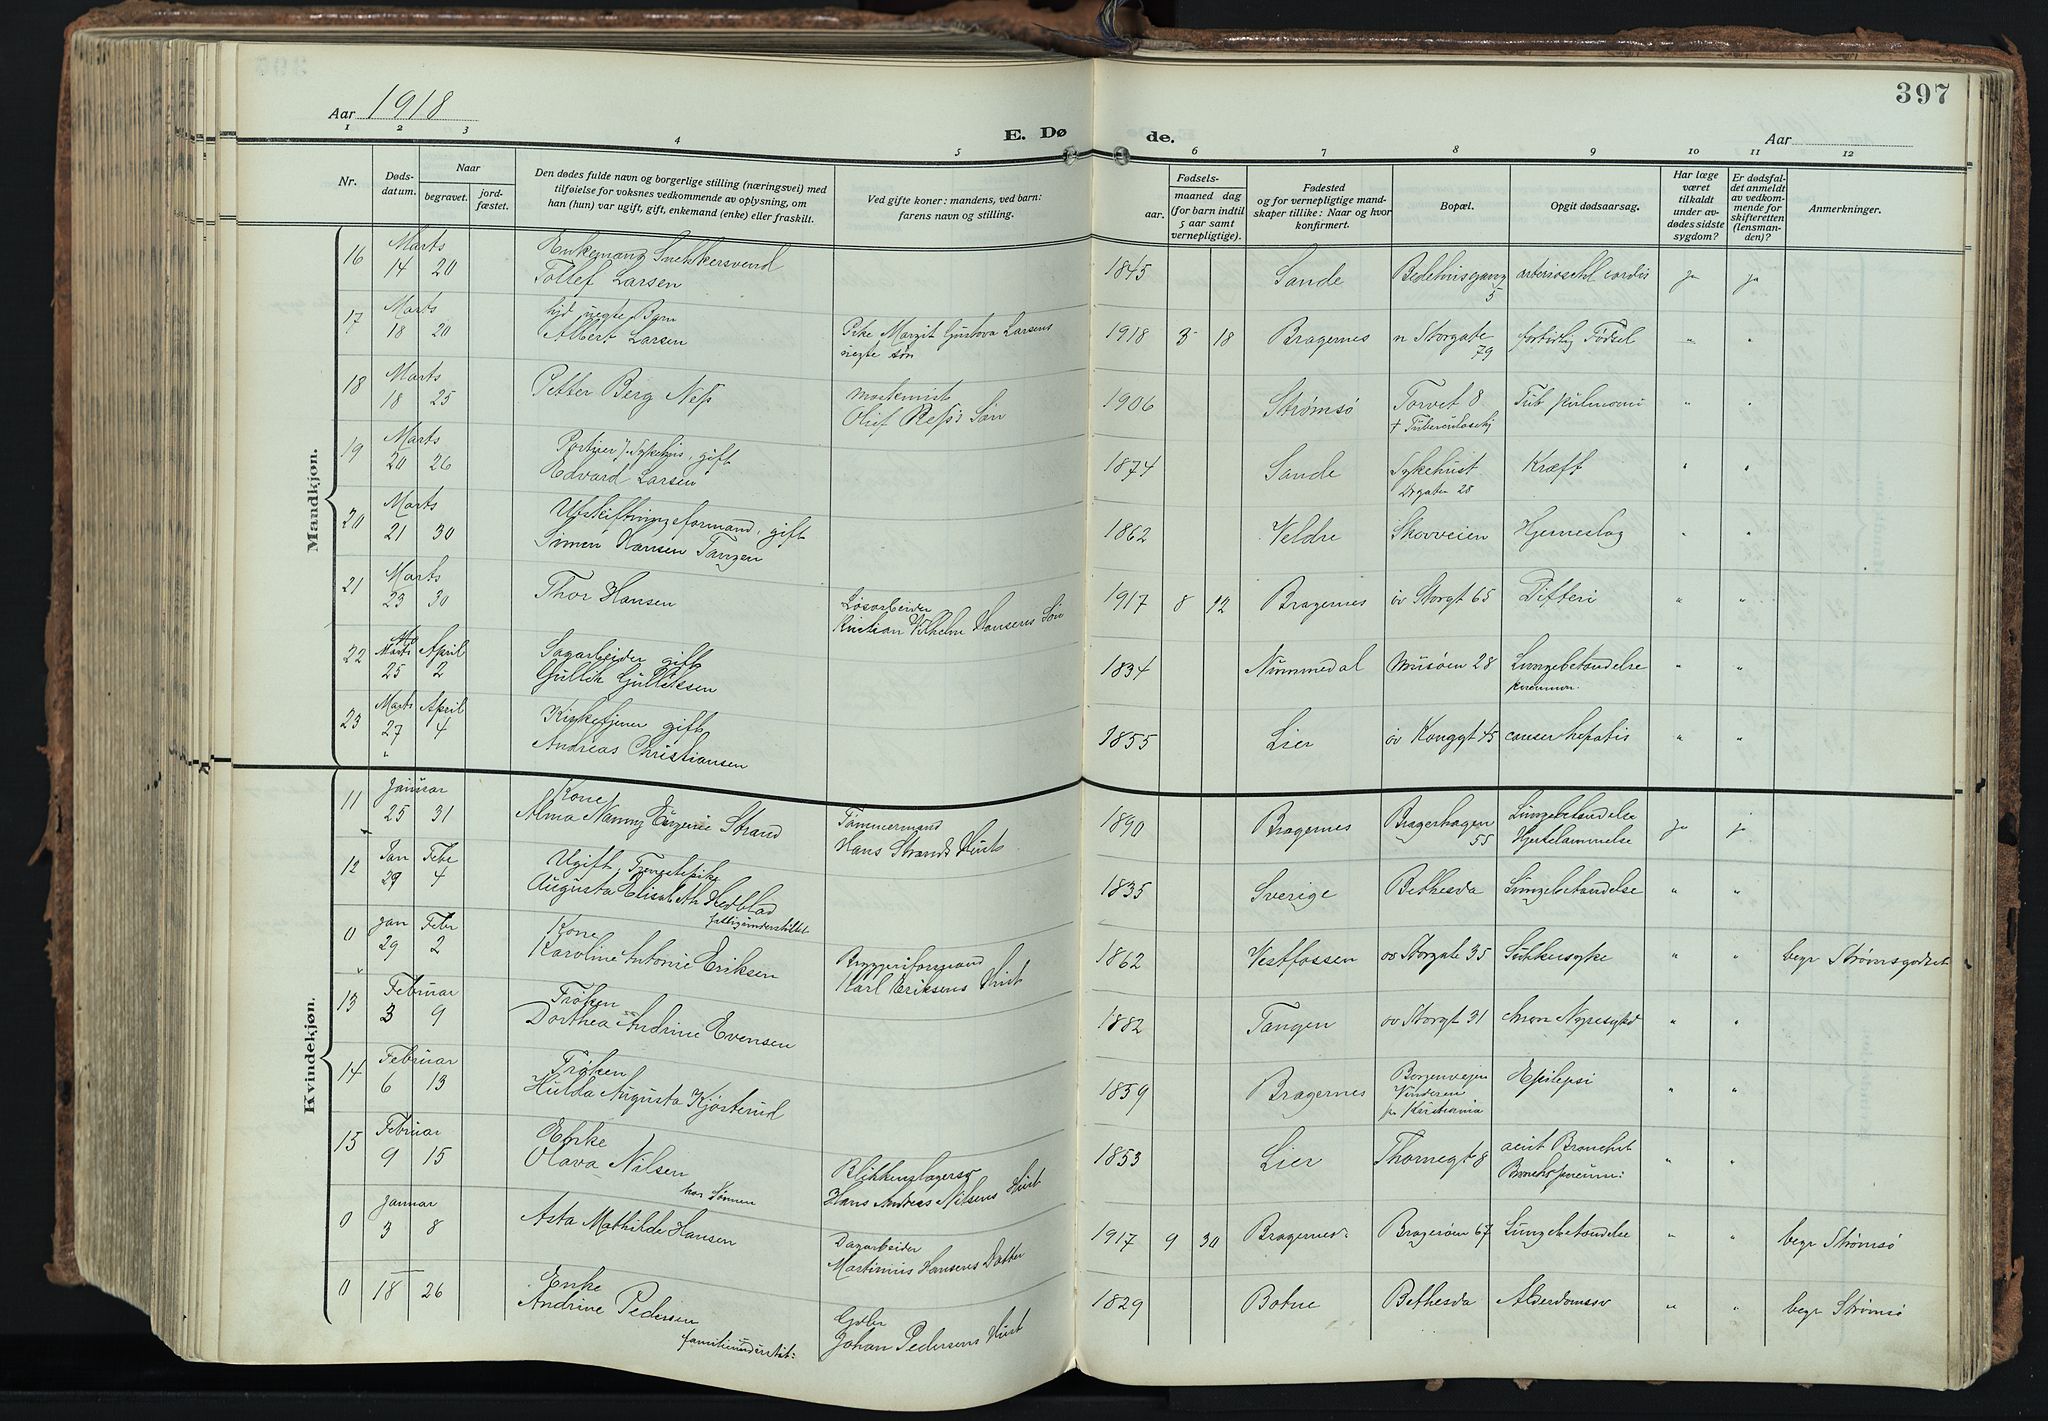 397
Aar 1918
E. Døde.
Aar
1 2 3 4 5 6 7 8 9 10 11 12
Nr.
Dødsdatum.
Naar
begravet.
jordfæstet.
Den dødes fulde navn og borgerlige stilling (næringsvei) med
tilføielse for voksnes vedkommende av oplysning, om
han (hun) var ugift, gift, enkemand (enke) eller fraskilt.
Ved gifte koner: mandens, ved barn:
farens navn og stilling.
Fødsels-
aar.
maaned dag
(for barn indtil
5 aar samt
vernepligtige).
Fødested
og for vernepligtige mand-
skaper tillike: Naar og hvor
konfirmert.
Bopæl.
Opgit dødsaarsag.
Har læge
været
tilkaldt
under av-
dødes sidste
sygdom?
Er dødsfal-
det anmeldt
av vedkom-
mende for
skifteretten
(lensman-
den)?
Anmerkninger.
Mandkjøn.
16 Marts 14 20 Enkemand Snekkersvend
Tollef Larsen 1845 Sande Bedehusgang 5 arteriosckl cordis ja ja
17 Marts 18 20 uegte
Albert Larsen Pike Margit Gustova Larsens
uegte søn 1918 3 18 Bragernes n Storgate 79 fortidlig Fødsel " "
18 Marts 18 25 Petter Berg Ness Maskinist
Olief Ness's Søn 1906 Strømsø Torvet 8
† Tuberculosehj Tub pulmoni " "
19 Marts 20 26 Portner Sykehus, gift
Edvard Larsen 1874 Sande Sykehust
28 Kræft " "
20 Marts 21 30 Utskiftningsformand, gift
Simen Hansen Tangen 1862 Veldre Skovveien Hjerneslag " "
21 Marts 23 30 Thor Hansen Løsarbeider
Kristian Vilhelm Hansens Søn 1917 8 12 Bragernes öv Storgt 65 Difteri " "
22 Marts 25 April 2 Sagarbeider gift
Gullik Gulliksen 1834 Nummedal Musøen 28 Lungebetændelse
" "
23 Marts 27 April 4 Kirketjener gift
Andreas Christiansen 1855 Lier öv Konggt 45 cancer hepatis " "
Kvindekjøn.
11 Januar 25 31 Kone
Alma Nanny Eugenie Strand Tømmermand
Hans Strands Hust 1890 Bragernes Bragerhagen 55 Lungebetændelse
Hjertelammelse ja ja
12 Jan 29 Febr 4 Ugift, Tjenestepike
Augusta Elisabeth Hedblad
fattigunderstøttet 1835 Sverige Bethesda Lungebetændelse " "
0 Jan 29 Febr 2 Kone
Karoline Antonie Eriksen Bryggeriformand
Karl Eriksens Hust 1862 Vestfossen ov Storgate 35 Sukkersyke " " begr Strømsgodset
13 Februar 3 9 Frøken
Dorthea Andrine Evensen 1882 Tangen ov Storgt 31 chron Nyresykd " "
14 Februar 6 13 Frøken
Hulda Augusta Kjøsterud 1859 Bragernes Borgenveien
Vinderen
pr Kristiania Epilepsi " "
15 Februar 9 15 Enke
Olava Nilsen
hos Sønnen Blikkenslagersv
Hans Andreas Nilsens Hust 1853 Lier Thornegt 8 acut Bronchit
Bronchopneumni " "
0 Januar 3 8 Asta Mathilde Hansen Dagarbeider
Martinius Hansens Datter 1917 9 30 Bragernes Bragerøen 67 Lungebetændelse " " begr Strømsø
0 18 26 Enke
Andrine Pedersen
Johan Pedersens Hust 1829 Botne Bethesda Alderdomssv " " begr Strømsø